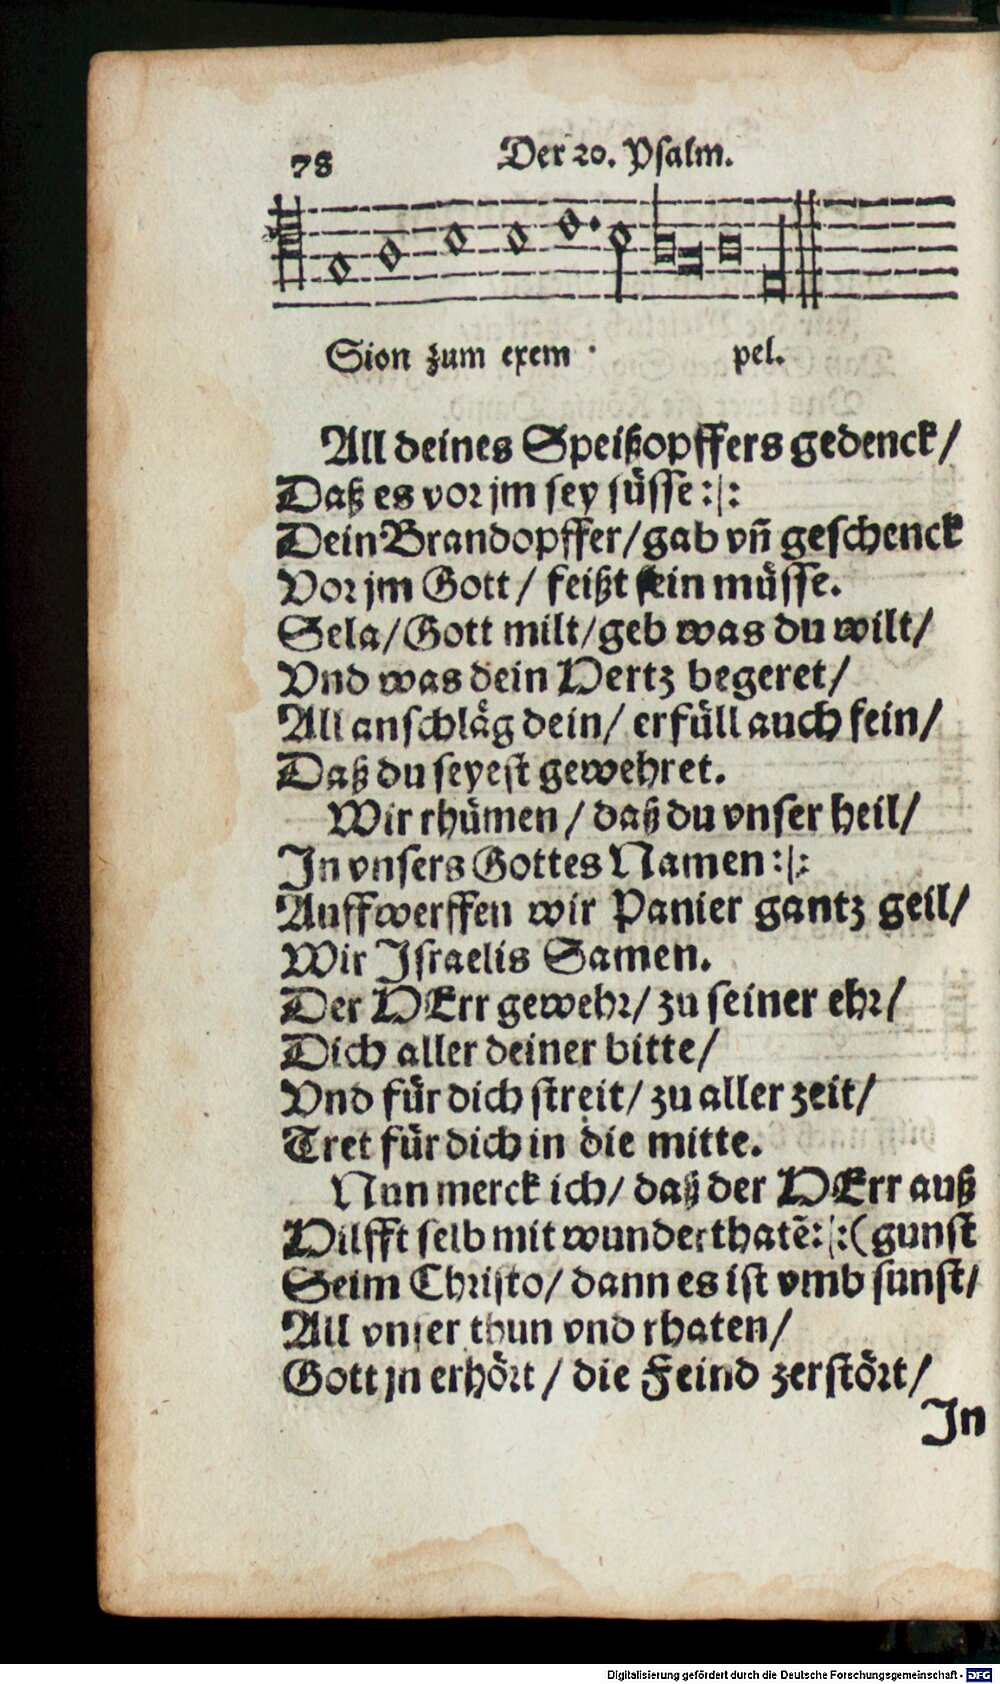 78 Der 20. Psalm.
Sion zum exem · pel.
All deines Speißopffers gedenck/
Daß es vor jm sey süsse :|:
Dein Brandopffer/ gab vñ geschenck
Vor jm Gott/ feißt sein müsse.
Sela/ Gott milt/ geb was du wilt/
Vnd was dein Hertz begeret/
All anschläg dein/ erfüll auch fein/
Daß du seyest gewehret.
Wir rhümen/ daß du vnser heil/
In vnsers Gottes Namen :|:
Auffwerffen wir Panier gantz geil/
Wir Israelis Samen.
Der HErr gewehr/ zu seiner ehr/
Dich aller deiner bitte/
Vnd für dich streit/ zu aller zeit/
Tret für dich in die mitte.
Nun merck ich/ daß der HErr auß
Hilfft selb mit wunderthatē :|: (gunst
Seim Christo/ dann es ist vmb sunst/
All vnser thun vnd rhaten/
Gott jn erhört/ die Feind zerstört/
In
Digitalisierung gefördert durch die Deutsche Forschungsgemeinschaft - DFG